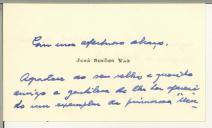 Com um afectuoso abraço,
José Simões Vaz
Agradece ao seu velho e querido
amigo a gentileza de lhe ter ofereci-
do um exemplar da primorosa